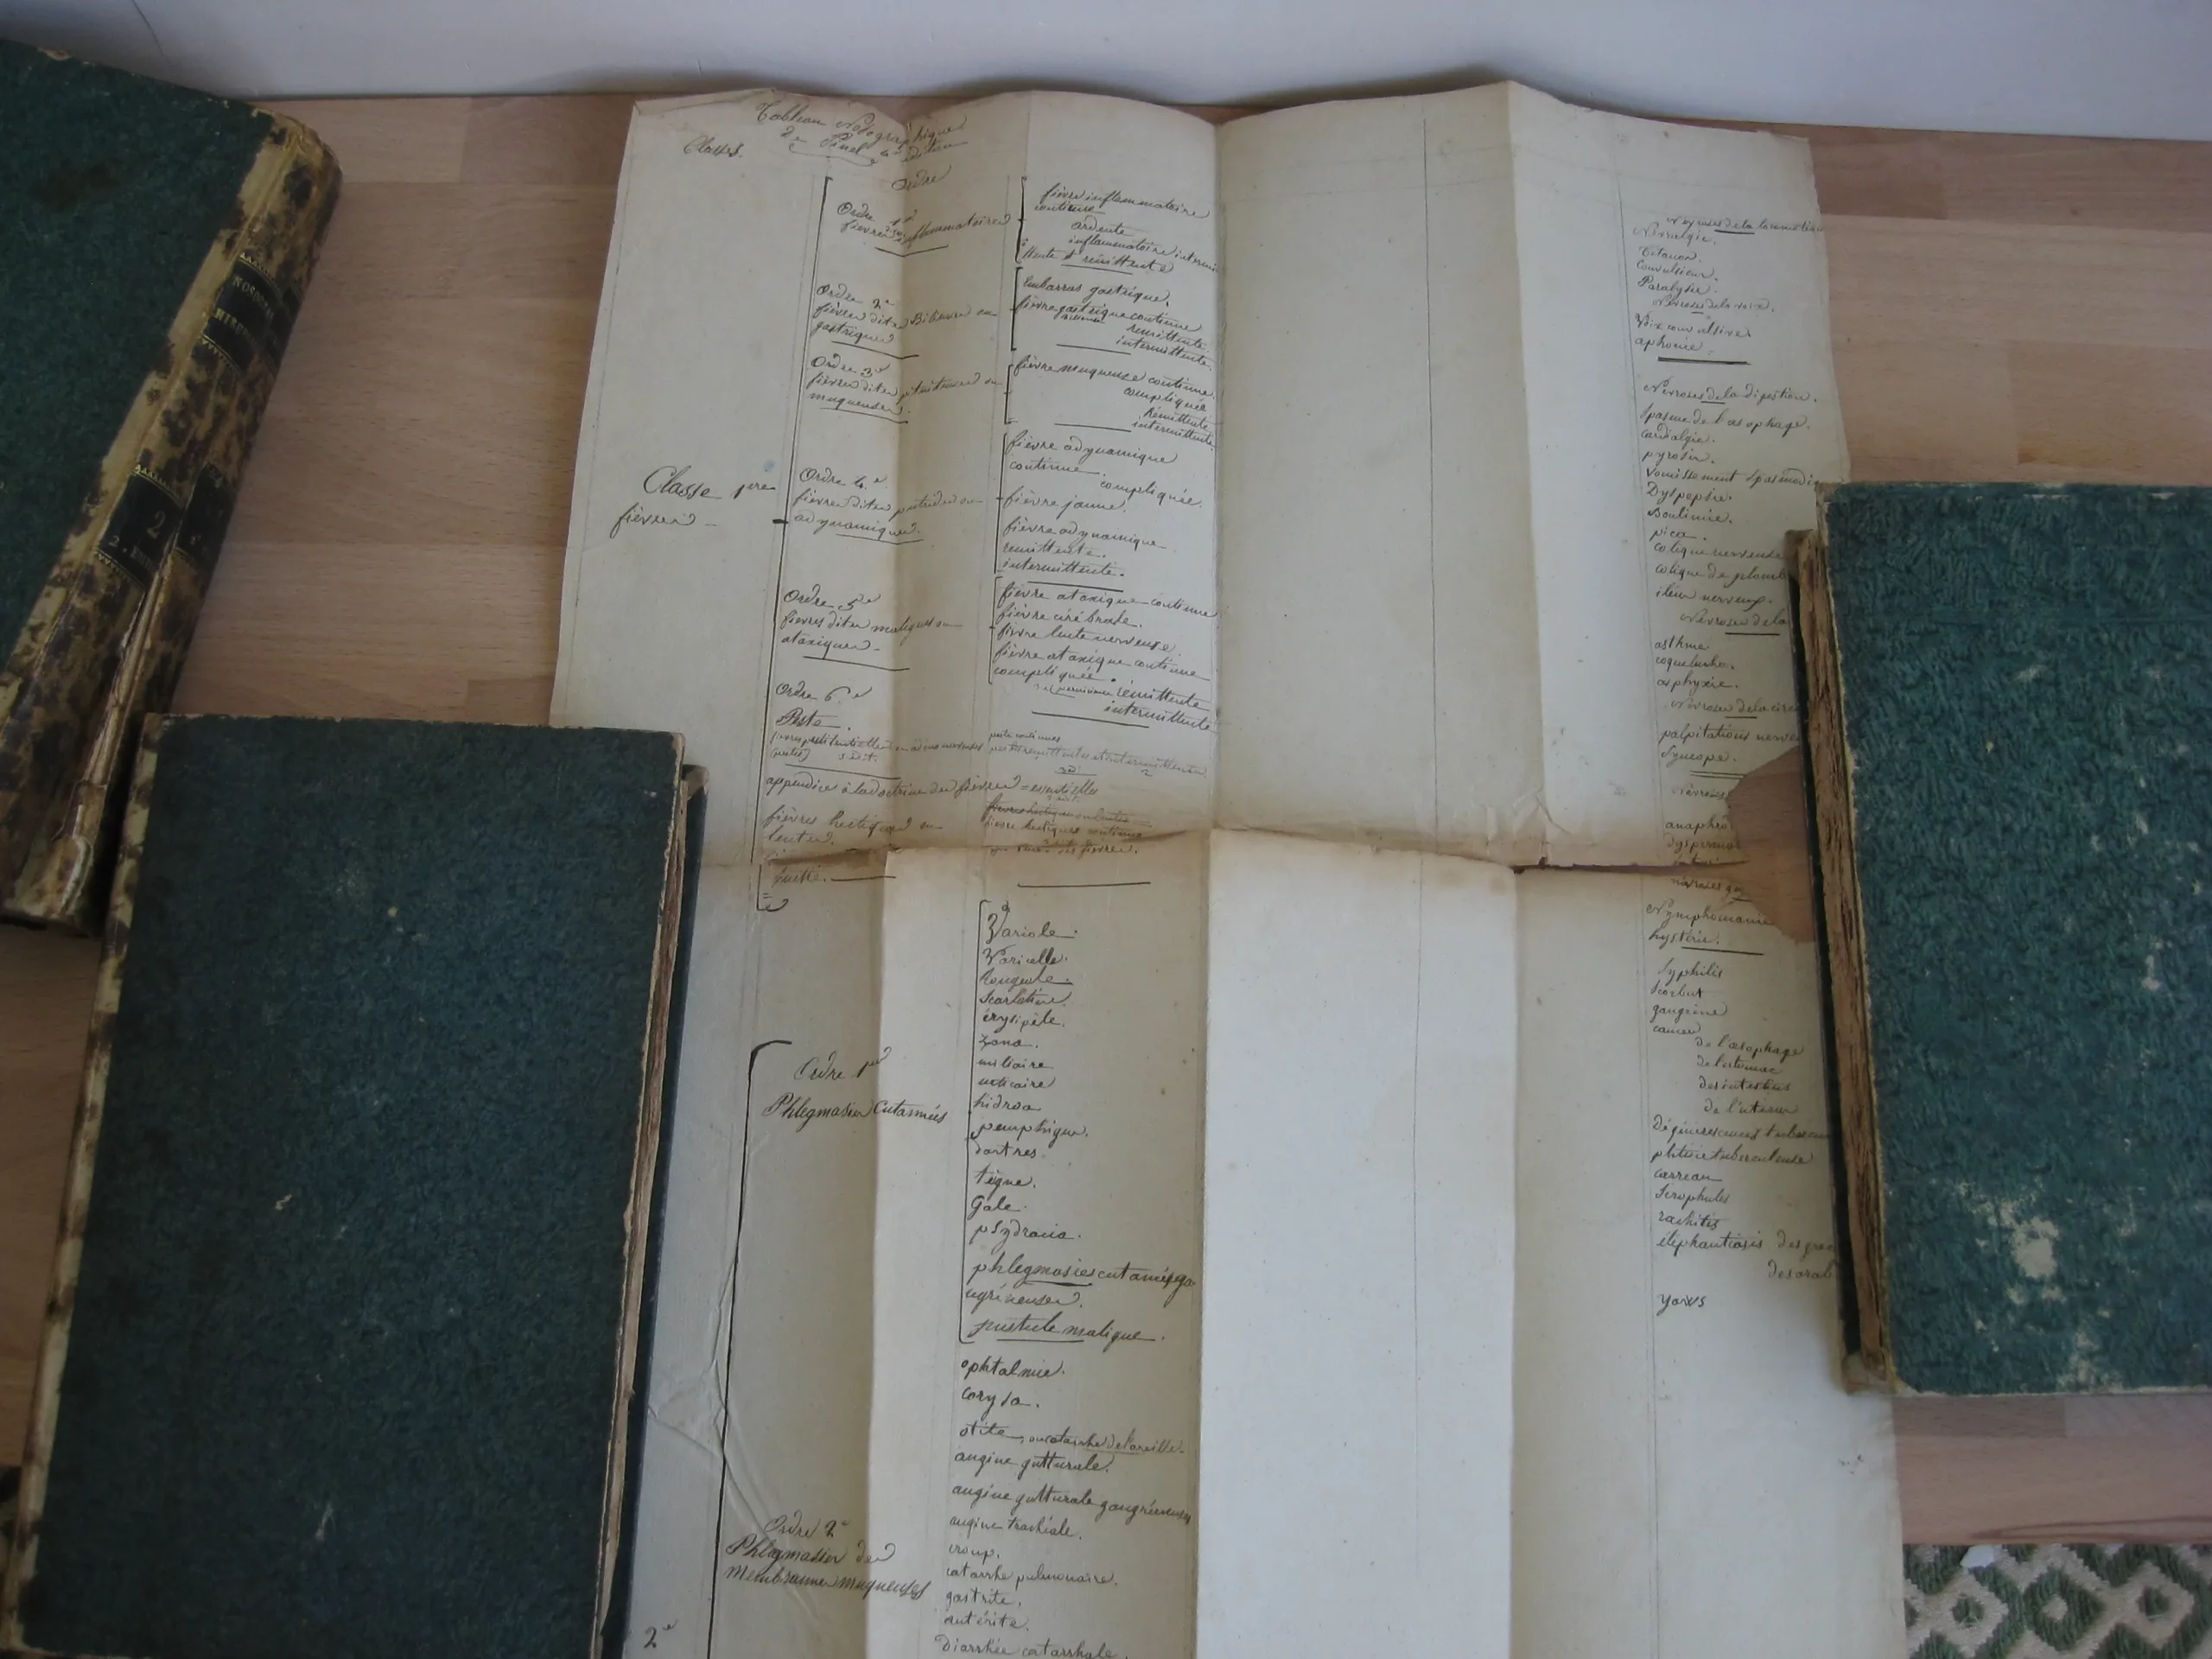 NOSOGRA
2
Tableau Nosographique
de Pinel 6e édition
Classes.
Ordre
Classe 1re
fièvres
Ordre 1er
fièvres inflammatoires
fièvre inflammatoire
continue
ardente
inflammatoire intermi
ttente & rémittente
Ordre 2e
fièvres dites Bilieuses ou
gastriques
Embarras gastrique.
fièvre gastrique continue
rémittente.
intermittente.
Ordre 3e
fièvres dites pituiteuses ou
muqueuses.
fièvre muqueuse continue.
compliquée
Rémittente
intermittente
Ordre 4e
fièvres dites putrides ou
adynamiques.
fièvre adynamique
continue
compliquée.
fièvre jaune.
fièvre adynamique
remittente.
intermittente.
Ordre 5e
fièvres dites malignes ou
ataxiques
fièvre ataxique continue
fièvre cérébrale.
fièvre lente nerveuse.
fièvre ataxique continue
compliquée.
rémittente
intermittente
Ordre 6e
Peste.
peste continue
appendice à la doctrine des fièvres essentielles
fièvres hectiques ou
lentes.
fièvre hectique continue
suite.
Ordre 1er
Phlegmasies Cutannées
Variole.
Varicelle.
Rougeole.
Scarlatine.
érysipèle.
zona.
miliaire
urticaire
hidroa
pemphigus.
dartres.
teigne.
Gale.
psydracia.
phlegmasies cutanées ga
ngréneuses.
pustule maligne.
ophtalmie.
coryza.
otite, ou catarrhe de l'oreille.
angine gutturale.
angine gutturale gangréneuse
angine trachéale.
croup.
catarrhe pulmonaire.
gastrite.
entérite.
Diarrhée catarrhale.
Ordre 2e
Phlegmasies des
Membrannes muqueuses
2e
Névroses de la locomotion
Névralgie.
Tétanos.
Convulsions.
Paralysie.
Névroses de la voix.
Voix convulsive
aphonie.
Névroses de la digestion.
Spasme de l'œsophage.
cardialgie.
pyrosis.
vomissement spasmodi
Dyspepsie.
Boulimie.
pica.
colique nerveuse
colique de plomb
iléus nerveux.
Névroses de la
asthme
coqueluche.
asphyxie.
Névroses de la circ
palpitations nerve
Syncope.
Névroses
anaphro
dyspermas
Nymphomanie
hystérie.
Syphilis
Scorbut
gangrène
cancer
de l'œsophage
de l'estomac
des intestins
de l'uterus
Dégénérescences tubercu
phtisie tuberculeuse
carreau
Scrophules
rachitis
éléphantiasis des grec
des arab
yaws